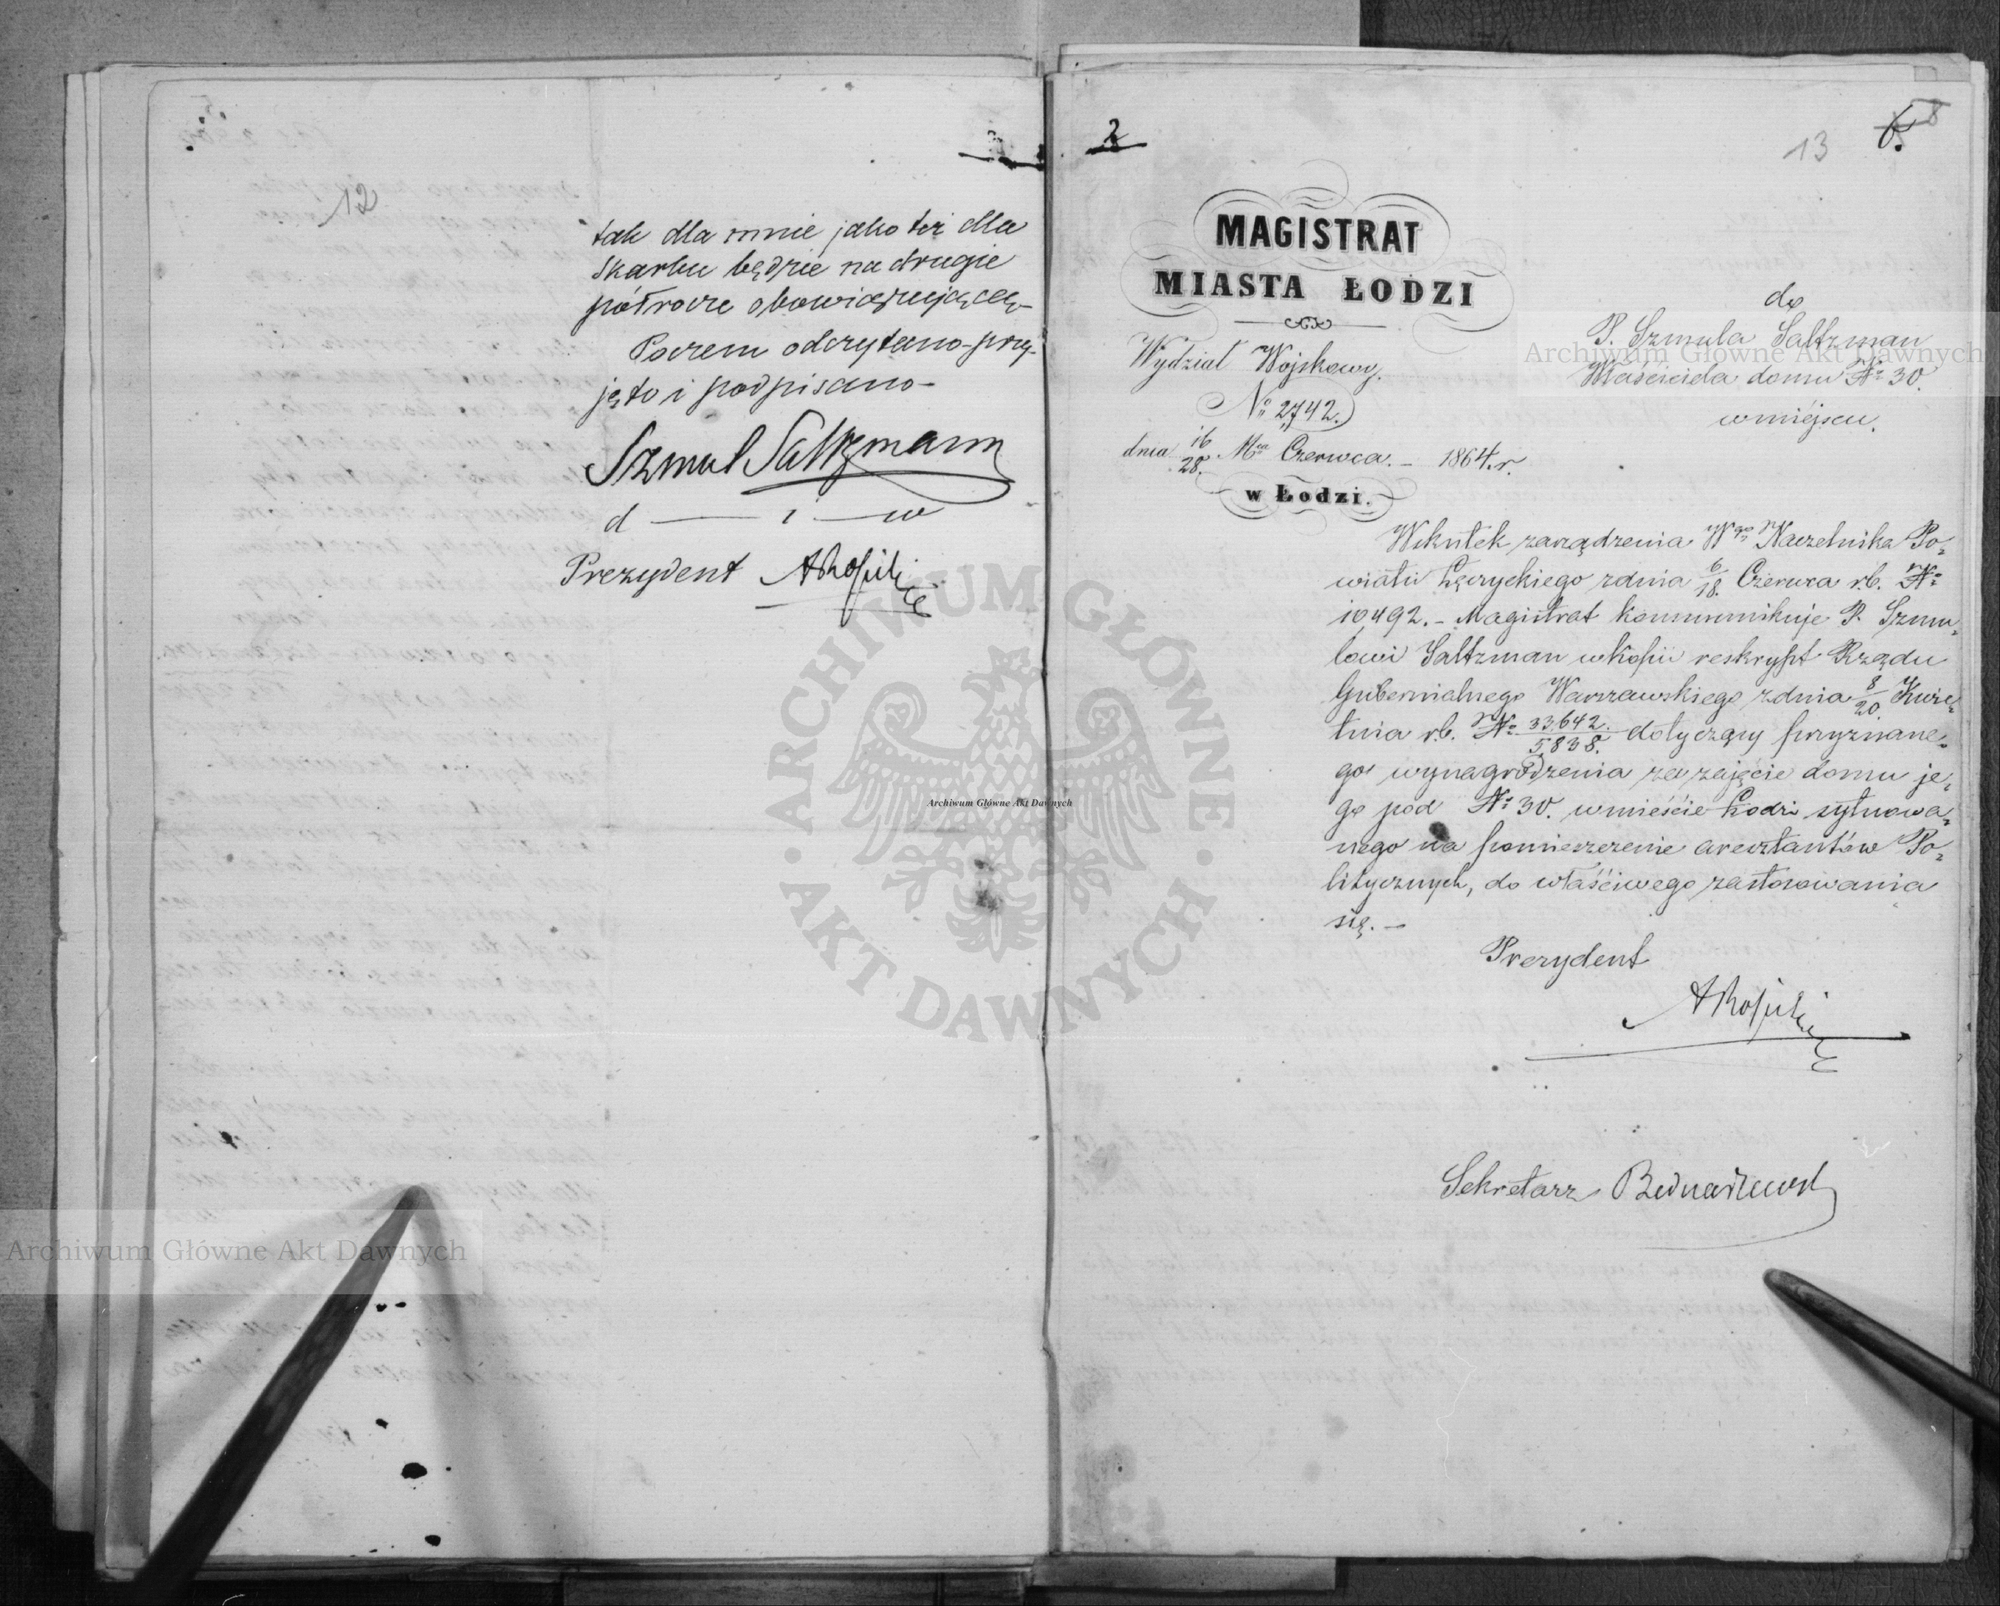 12
tak dla mnie jako też dla
skarbu będzie na drugie
półrocze obowiązującą
Poczem odczytano przy-
jęto i podpisano -
Szmul Saltzmann
d — i — w
Prezydent
2
13
6.
8
MAGISTRAT
MIASTA ŁODZI
Wydział Wojskowy.
No 2,742.
dnia 16/28. Mca Czerwca. - 1864. r.
w Łodzi.
do
P. Szmula Saltzman
Właściciela domu No 30.
w miejscu.
Wskutek zarządzenia Wgo Naczelnika Po-
wiatu Łęczyckiego z dnia 6/18. Czerwca r.b. No
10492. - Magistrat kommunikuje P. Szmu-
lowi Saltzman w kopii reskrypt Rządu
Gubernialnego Warszawskiego z dnia 8/20. Kwie-
tnia r.b. No 33,642./5,838. dotyczący przyznane-
go wynagrodzenia za zajęcie domu je-
go pod No 30. w mieście Łodzi sytuowa-
nego na pomieszczenie aresztantów Po-
litycznych, do właściwego zastosowania
się. -
Prezydent
Sekretarz
ARCHIWUM GŁÓWNE
AKT DAWNYCH
Archiwum Główne Akt Dawnych
Archiwum Główne Akt Dawnych
Archiwum Główne Akt Dawnych